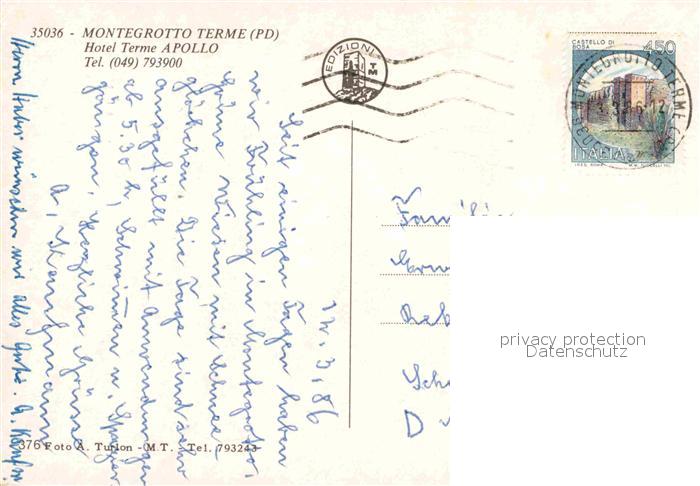 35036 - MONTEGROTTO TERME (PD)
Hotel Terme APOLLO
Tel. (049) 793900
EDIZIONI
TM
CASTELLO DI
BOSA
450
MONTEGROTTO TERME
ITALIA
12.3.86
Seit einigen Tagen haben
wir Frühling in Montegrotto,
grüne Wiesen mit Schnee-
glöckchen. Die Tage sind sehr
ausgefüllt mit Anwendungen
ab 5.30 h, Schwimmen u. Spazier-
gängen. Herzliche Grüsse
Herrn Huber wünschen wir alles Gute.
Famili
D
privacy protection
Datenschutz
376 Foto A. Turlon - M.T. - Tel. 793243